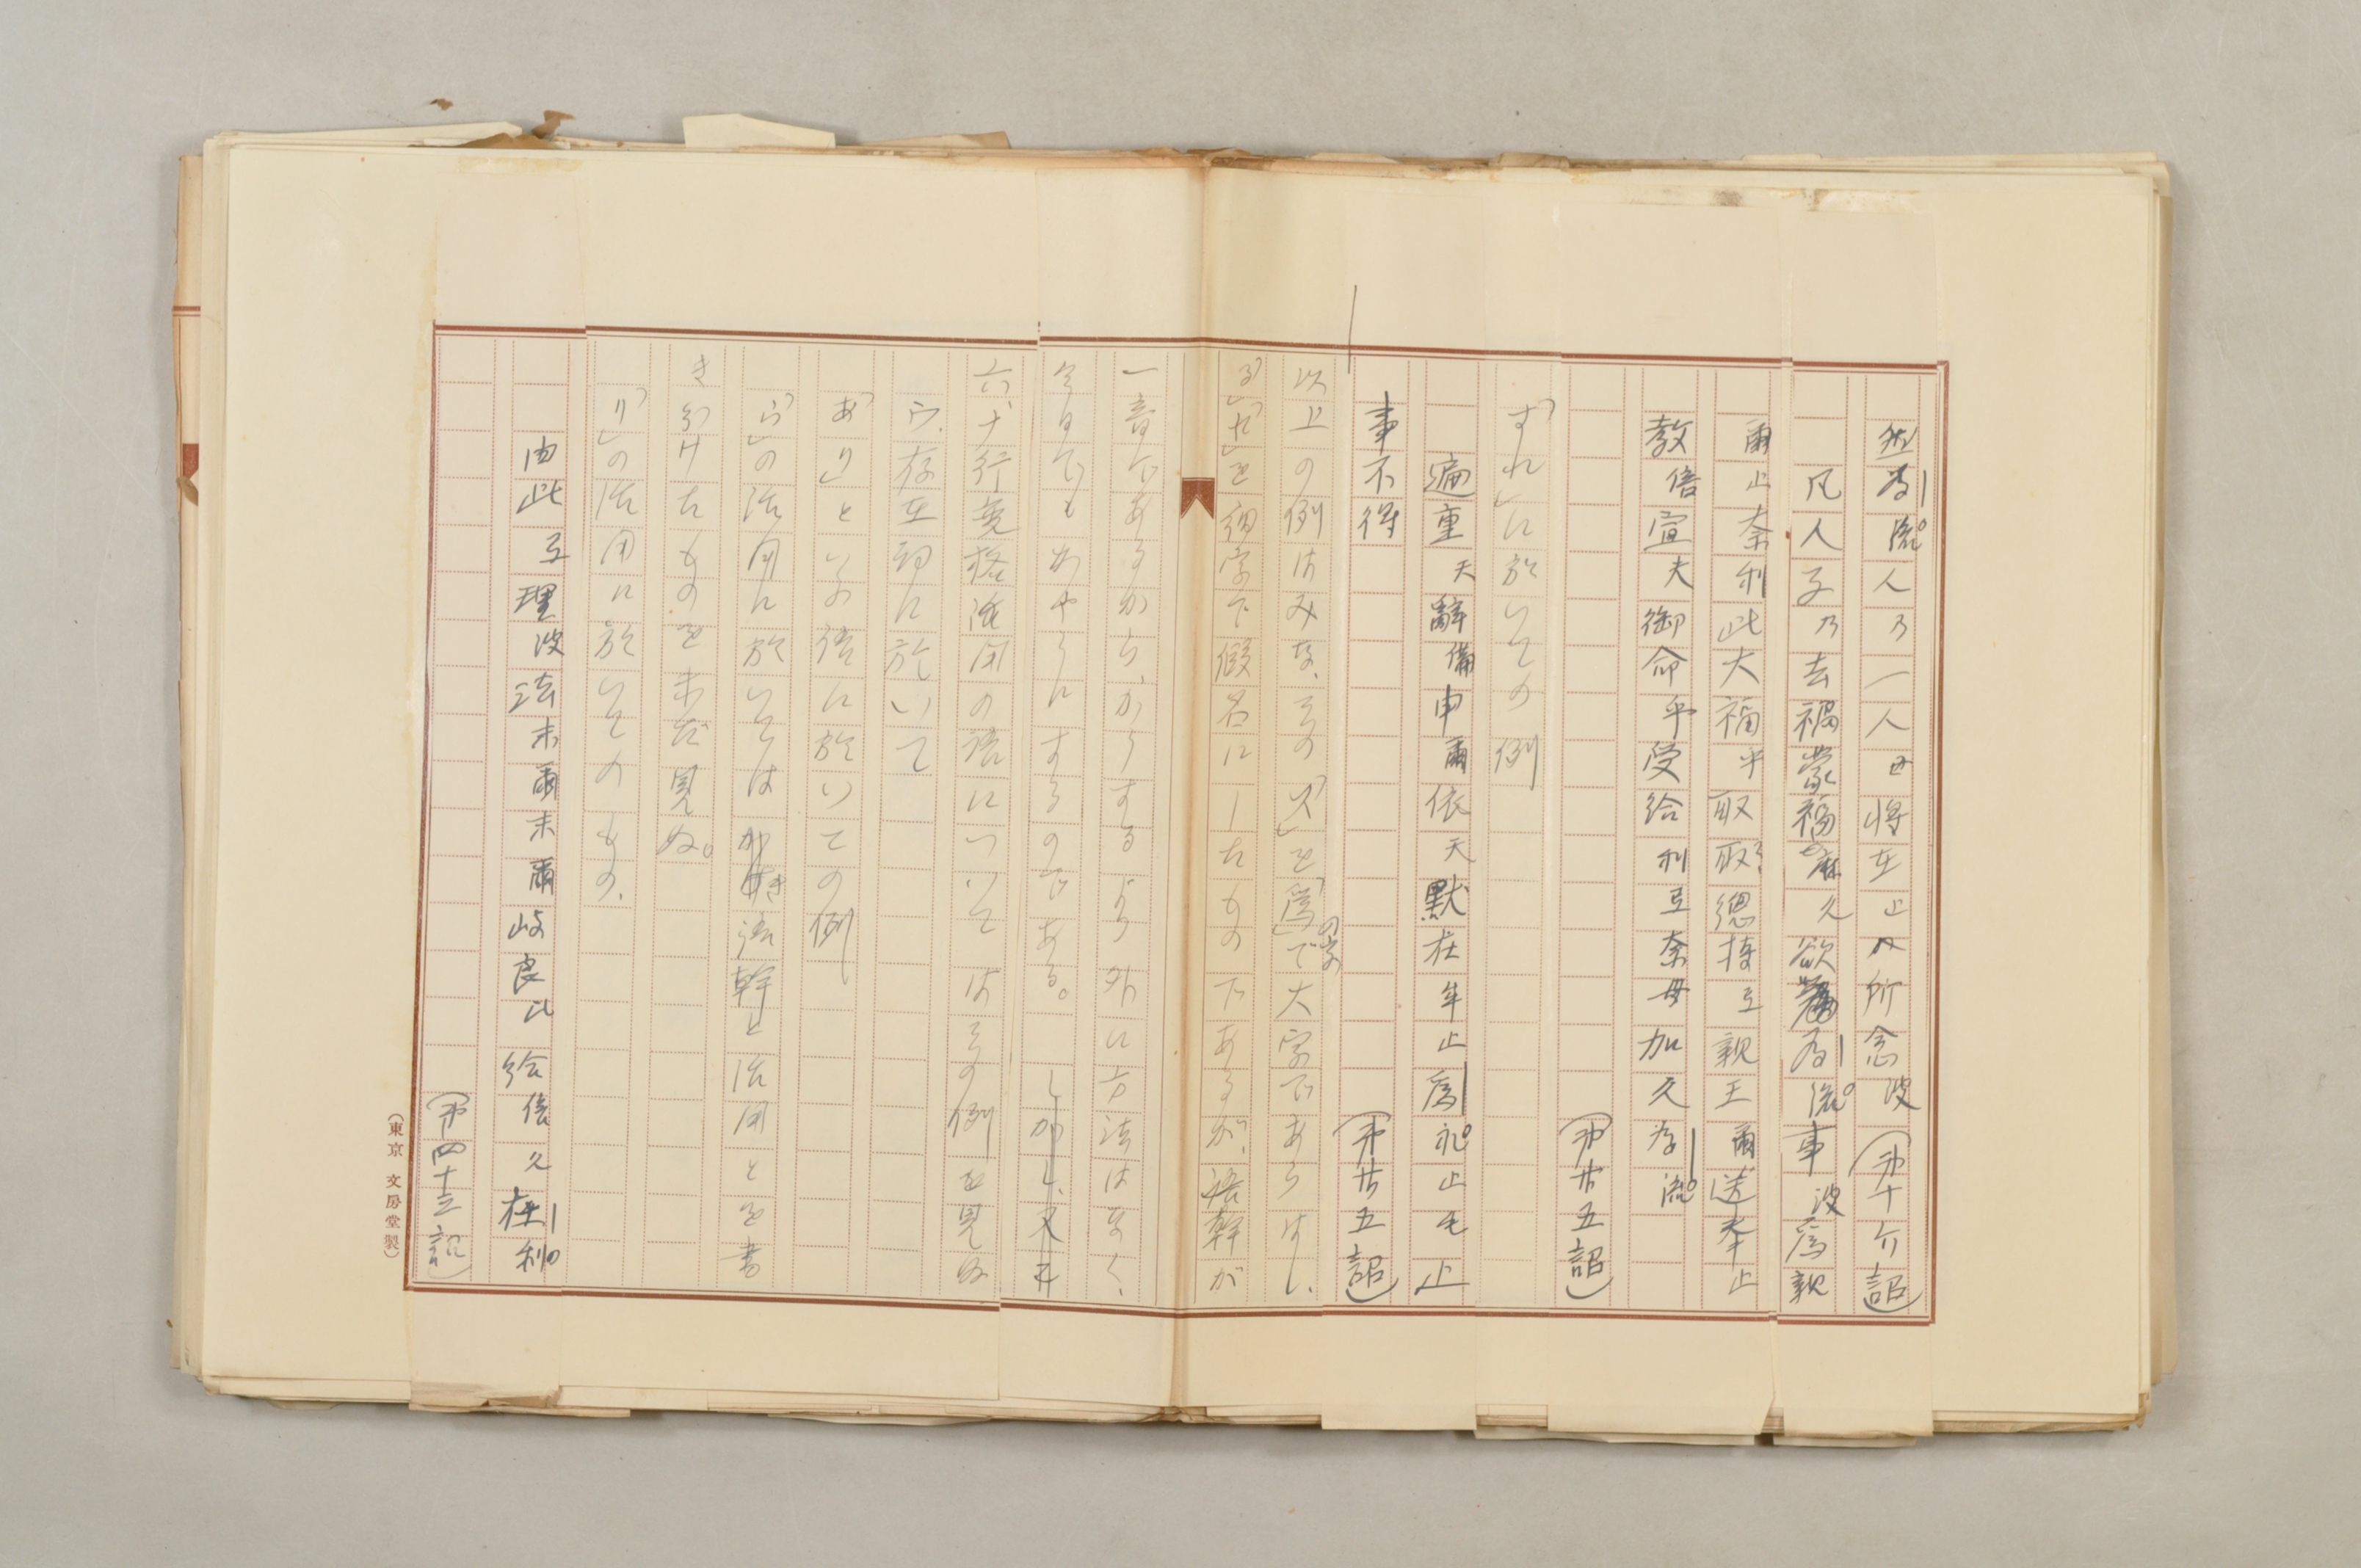 然為流人乃一人母將在止所念波（第十六詔）
凡人子乃去禍蒙福麻久欲為流事波為親
爾止奈利此大福乎取取總持弖親王爾送奉止
教倍宣夫御命乎受給利弖奈母加久為流
（第廿五詔）
「すれ」に於いての例
遍重天辭備申爾依天默在牟止為礼止毛止
事不得（第廿五詔）
以上の例はみな、その「ス」を「為」の字で大字であらはし、
「る」「れ」を細字で假名にしたものであるが、語幹が
一音であるから、かうするより外に方法はなく、
今日でもかやうにするのである。しかし、又
六、ナ行変格活用の語についてはその例を見ぬ
ラ、存在詞に於いて
「あり」といふ語に於いての例
「ら」の活用に於いては語幹と活用とを書
き分けたものを未だ見ぬ。
「り」の活用に於いてのもの、
由此弖理波法末爾末爾岐良比給倍久在利
（第四十三詔）
（東京 文房堂製）